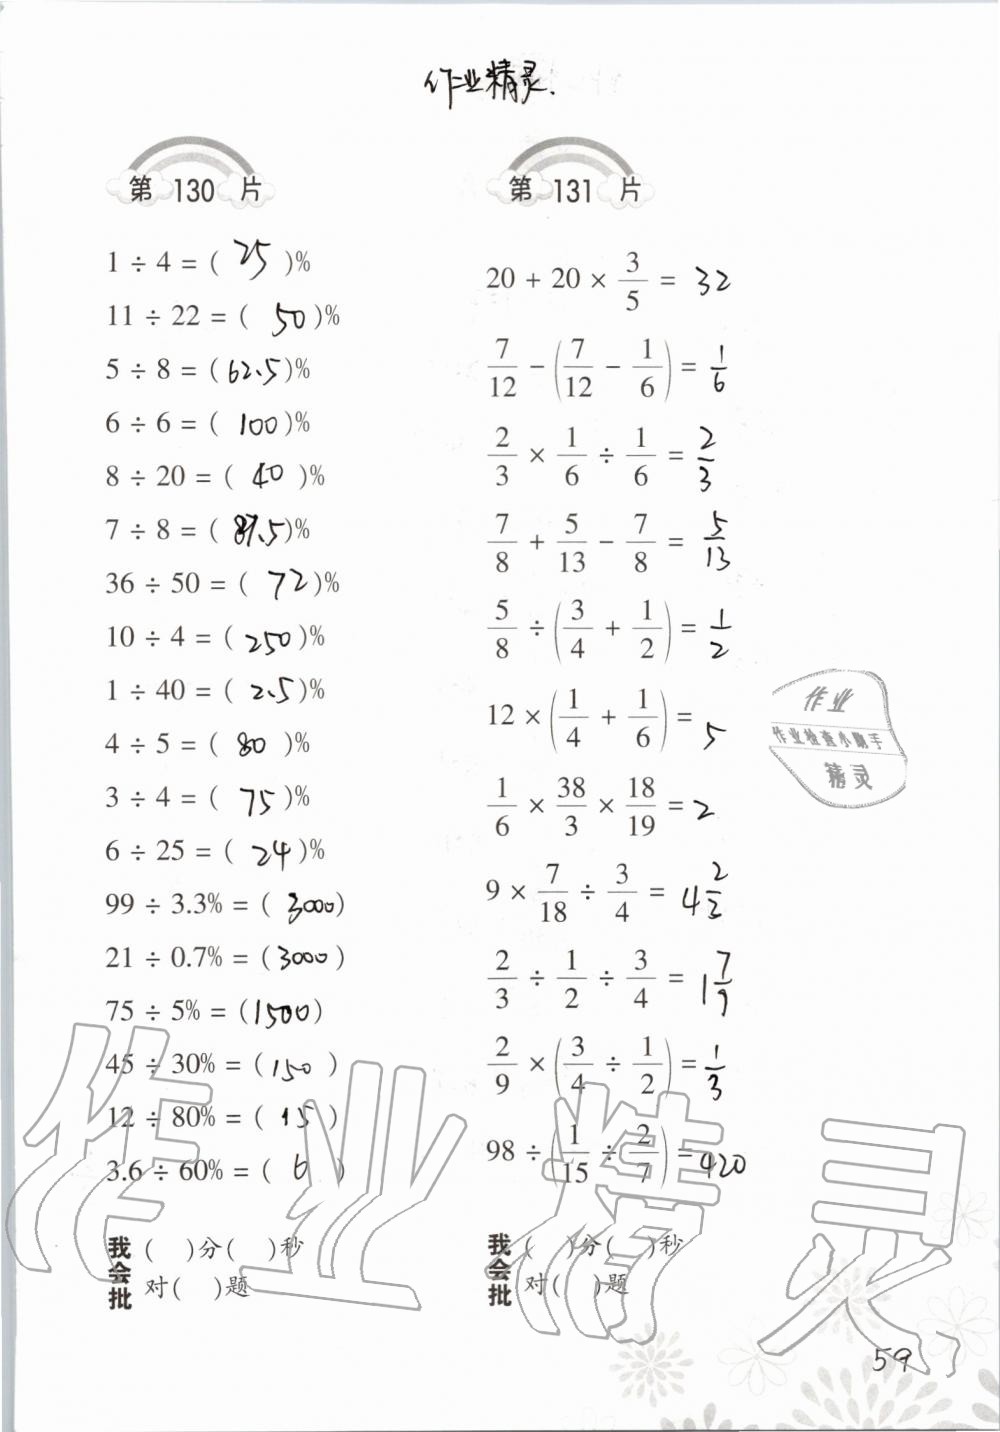 作业精灵.
第 130 片
1 ÷ 4 = ( 25 )%
11 ÷ 22 = ( 50 )%
5 ÷ 8 = ( 62.5 )%
6 ÷ 6 = ( 100 )%
8 ÷ 20 = ( 40 )%
7 ÷ 8 = ( 87.5 )%
36 ÷ 50 = ( 72 )%
10 ÷ 4 = ( 250 )%
1 ÷ 40 = ( 2.5 )%
4 ÷ 5 = ( 80 )%
3 ÷ 4 = ( 75 )%
6 ÷ 25 = ( 24 )%
99 ÷ 3.3% = ( 3000 )
21 ÷ 0.7% = ( 3000 )
75 ÷ 5% = ( 1500 )
45 ÷ 30% = ( 150 )
12 ÷ 80% = ( 15 )
3.6 ÷ 60% = ( 6 )
我会批 ( )分( )秒
对( )题
第 131 片
20 + 20 × 3/5 = 32
7/12 - (7/12 - 1/6) = 1/6
2/3 × 1/6 ÷ 1/6 = 2/3
7/8 + 5/13 - 7/8 = 5/13
5/8 ÷ (3/4 + 1/2) = 1/2
12 × (1/4 + 1/6) = 5
1/6 × 38/3 × 18/19 = 2
9 × 7/18 ÷ 3/4 = 4 2/3
2/3 ÷ 1/2 ÷ 3/4 = 1 7/9
2/9 × (3/4 ÷ 1/2) = 1/3
98 ÷ (1/15 ÷ 2/7) = 420
我会批 ( )分( )秒
对( )题
作业
作业检查小助手
精灵
作业精灵
59